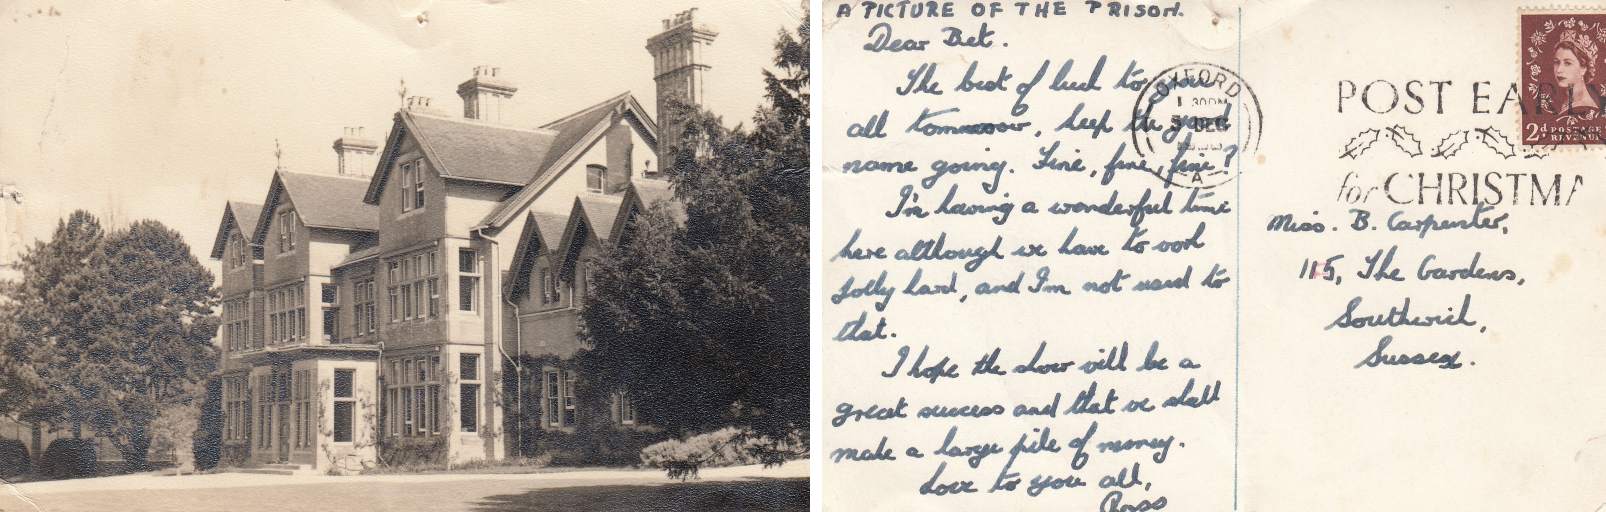 A PICTURE OF THE PRISON.
Dear Bet.
The best of luck to you
all tomorrow, keep the
name going. Fine, fine, fine?
I'm having a wonderful time
here although we have to work
jolly hard, and I'm not used to
that.
I hope the show will be a
great success and that we shall
make a large pile of money.
Love to you all,
Ross
OXFORD
1 30PM
DEC
A
POST EARLY
for CHRISTMA
2d POSTAGE
REVENUE
Miss. B. Carpenter,
115, The Gardens,
Southwick,
Sussex.